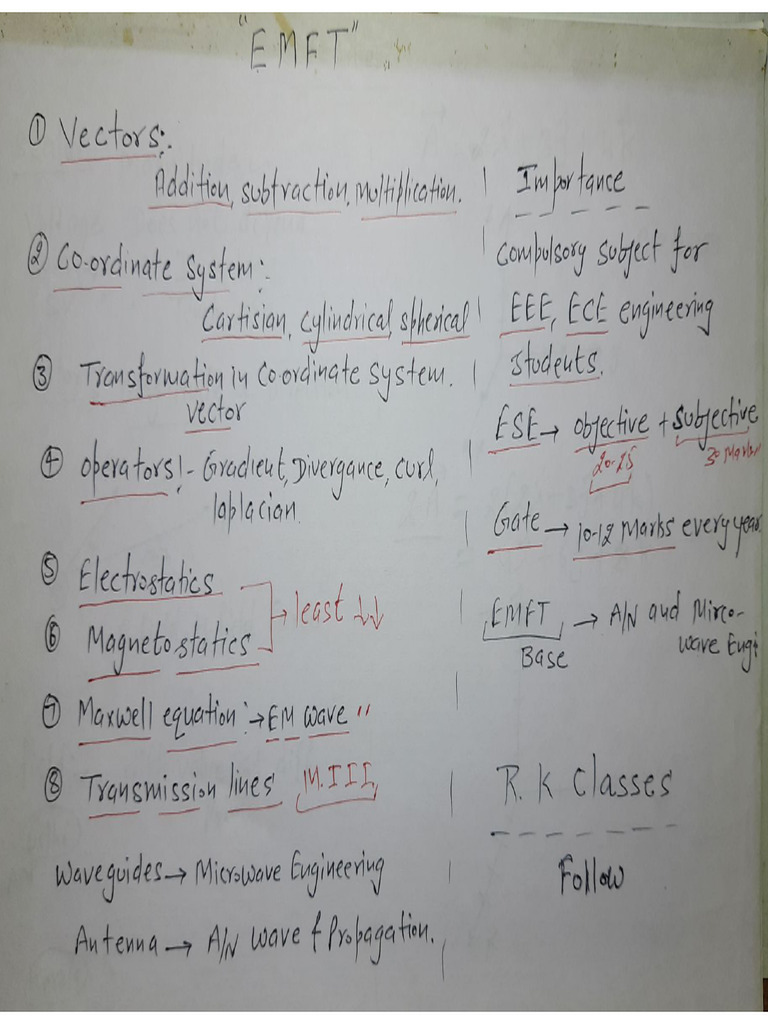 "EMFT"
① Vectors:.
Addition, subtraction, multiplication.
② Co-ordinate System:.
Cartisian, cylindrical, spherical
③ Transformation in Co-ordinate system.
vector
④ operators!- Gradient, Divergance, curl,
laplacian.
⑤ Electrostatics
→ least ↓↓
⑥ Magneto statics
⑦ Maxwell equation:→ EM wave "
⑧ Transmission lines M.III
Waveguides → Microwave Engineering
Antenna → A/N wave & Propagation.
Importance
Compulsory subject for
EEE, ECE engineering
students.
ESE → objective + subjective
20-25 30 Marks
Gate → 10-12 Marks every year
EMFT → A/N and Mirco-
Base wave Engi
R.K Classes
Follow